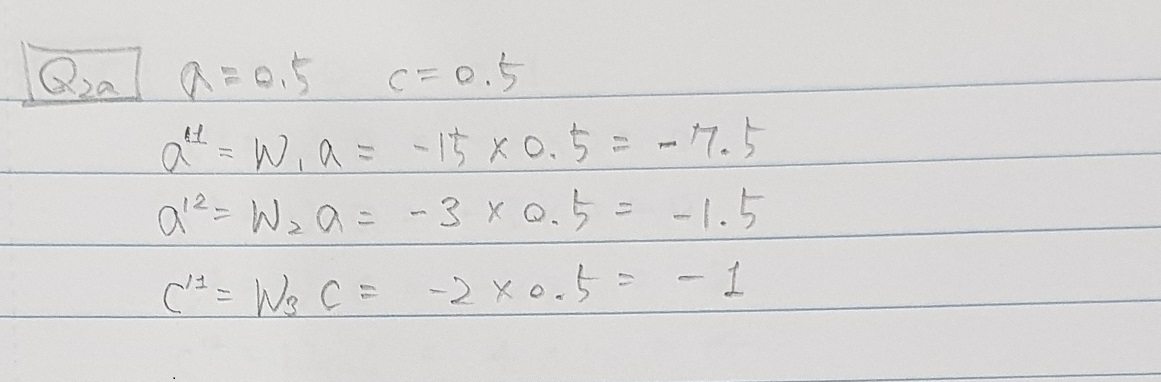 Q2a a = 0.5 c = 0.5
a'1 = W1 a = -15 x 0.5 = -7.5
a'2 = W2 a = -3 x 0.5 = -1.5
c'1 = W3 c = -2 x 0.5 = -1